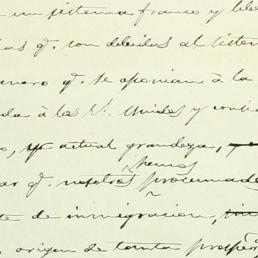 un sistema franco y libe
q.e son debidas al sistem
q.e se oponian à la
à los E.s Unidos y conti
su actual grandeza,
hemos
q.e nosotros procurado
de inmigracion,
origen de tanta prosper